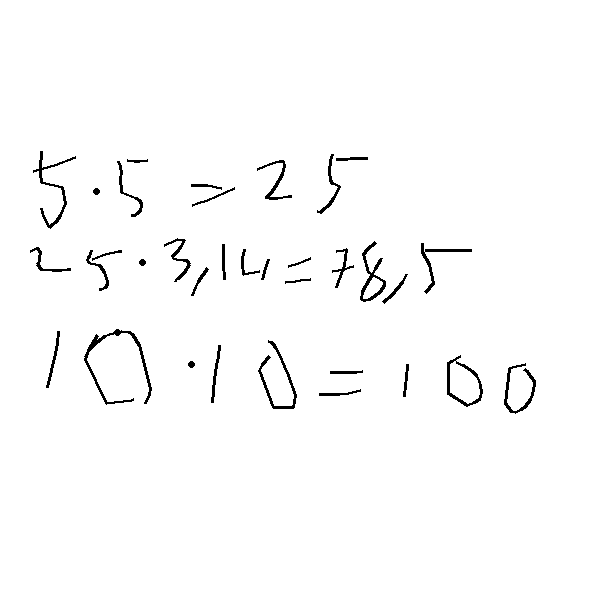 5·5=25
25·3,14=78,5
10·10=100